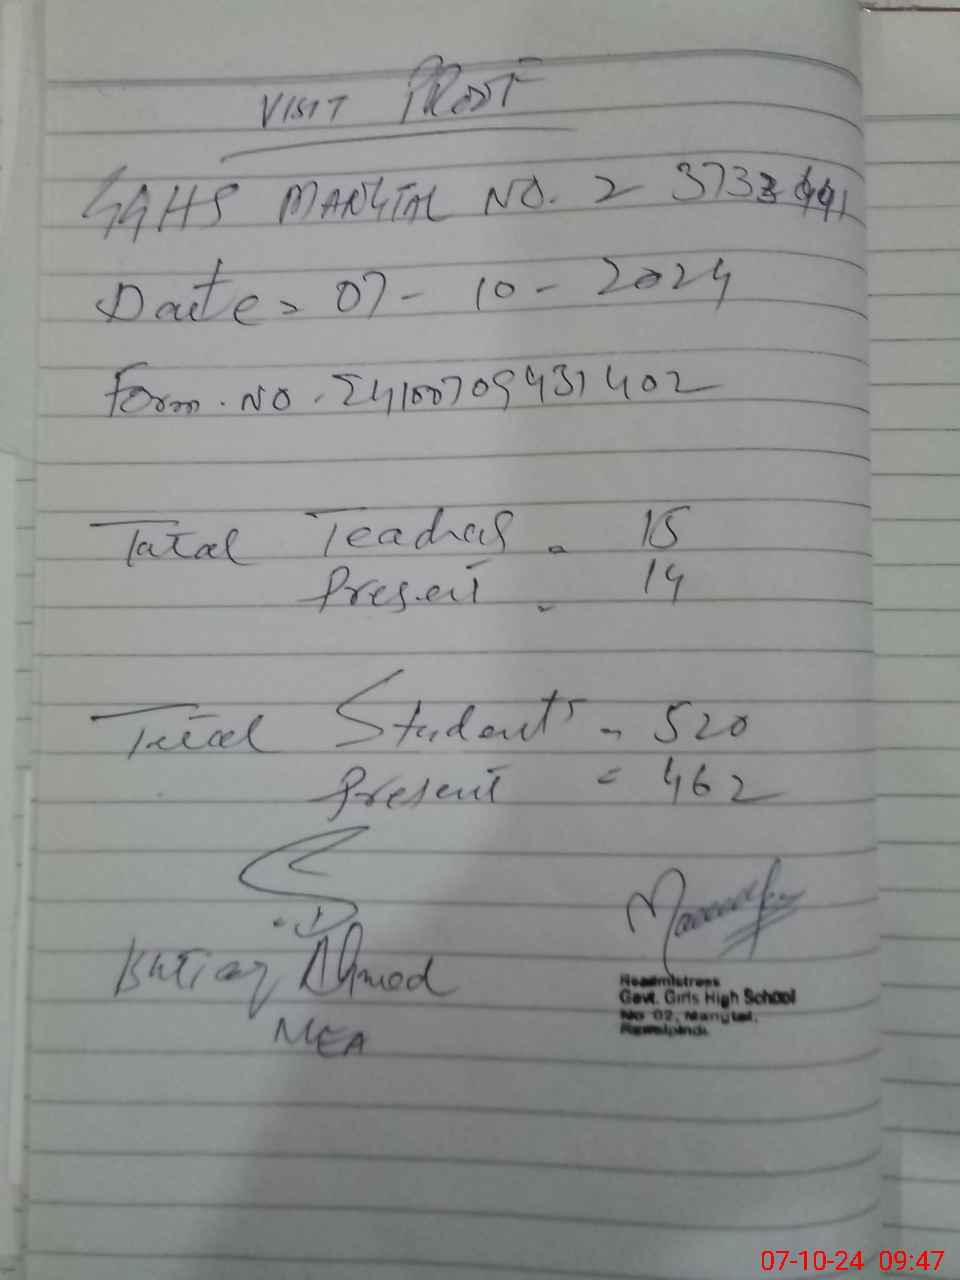 VISIT PROOF
GGHS MANGTAL NO. 2
Date = 07 - 10 - 2024
Form. No. 24100709431402
Total Teachers = 15
Present = 14
Total Students = 520
Present = 462
Ahmed
MEA
Headmistress
Govt. Girls High School
No 02, Mangtal,
Rawalpindi
07-10-24 09:47